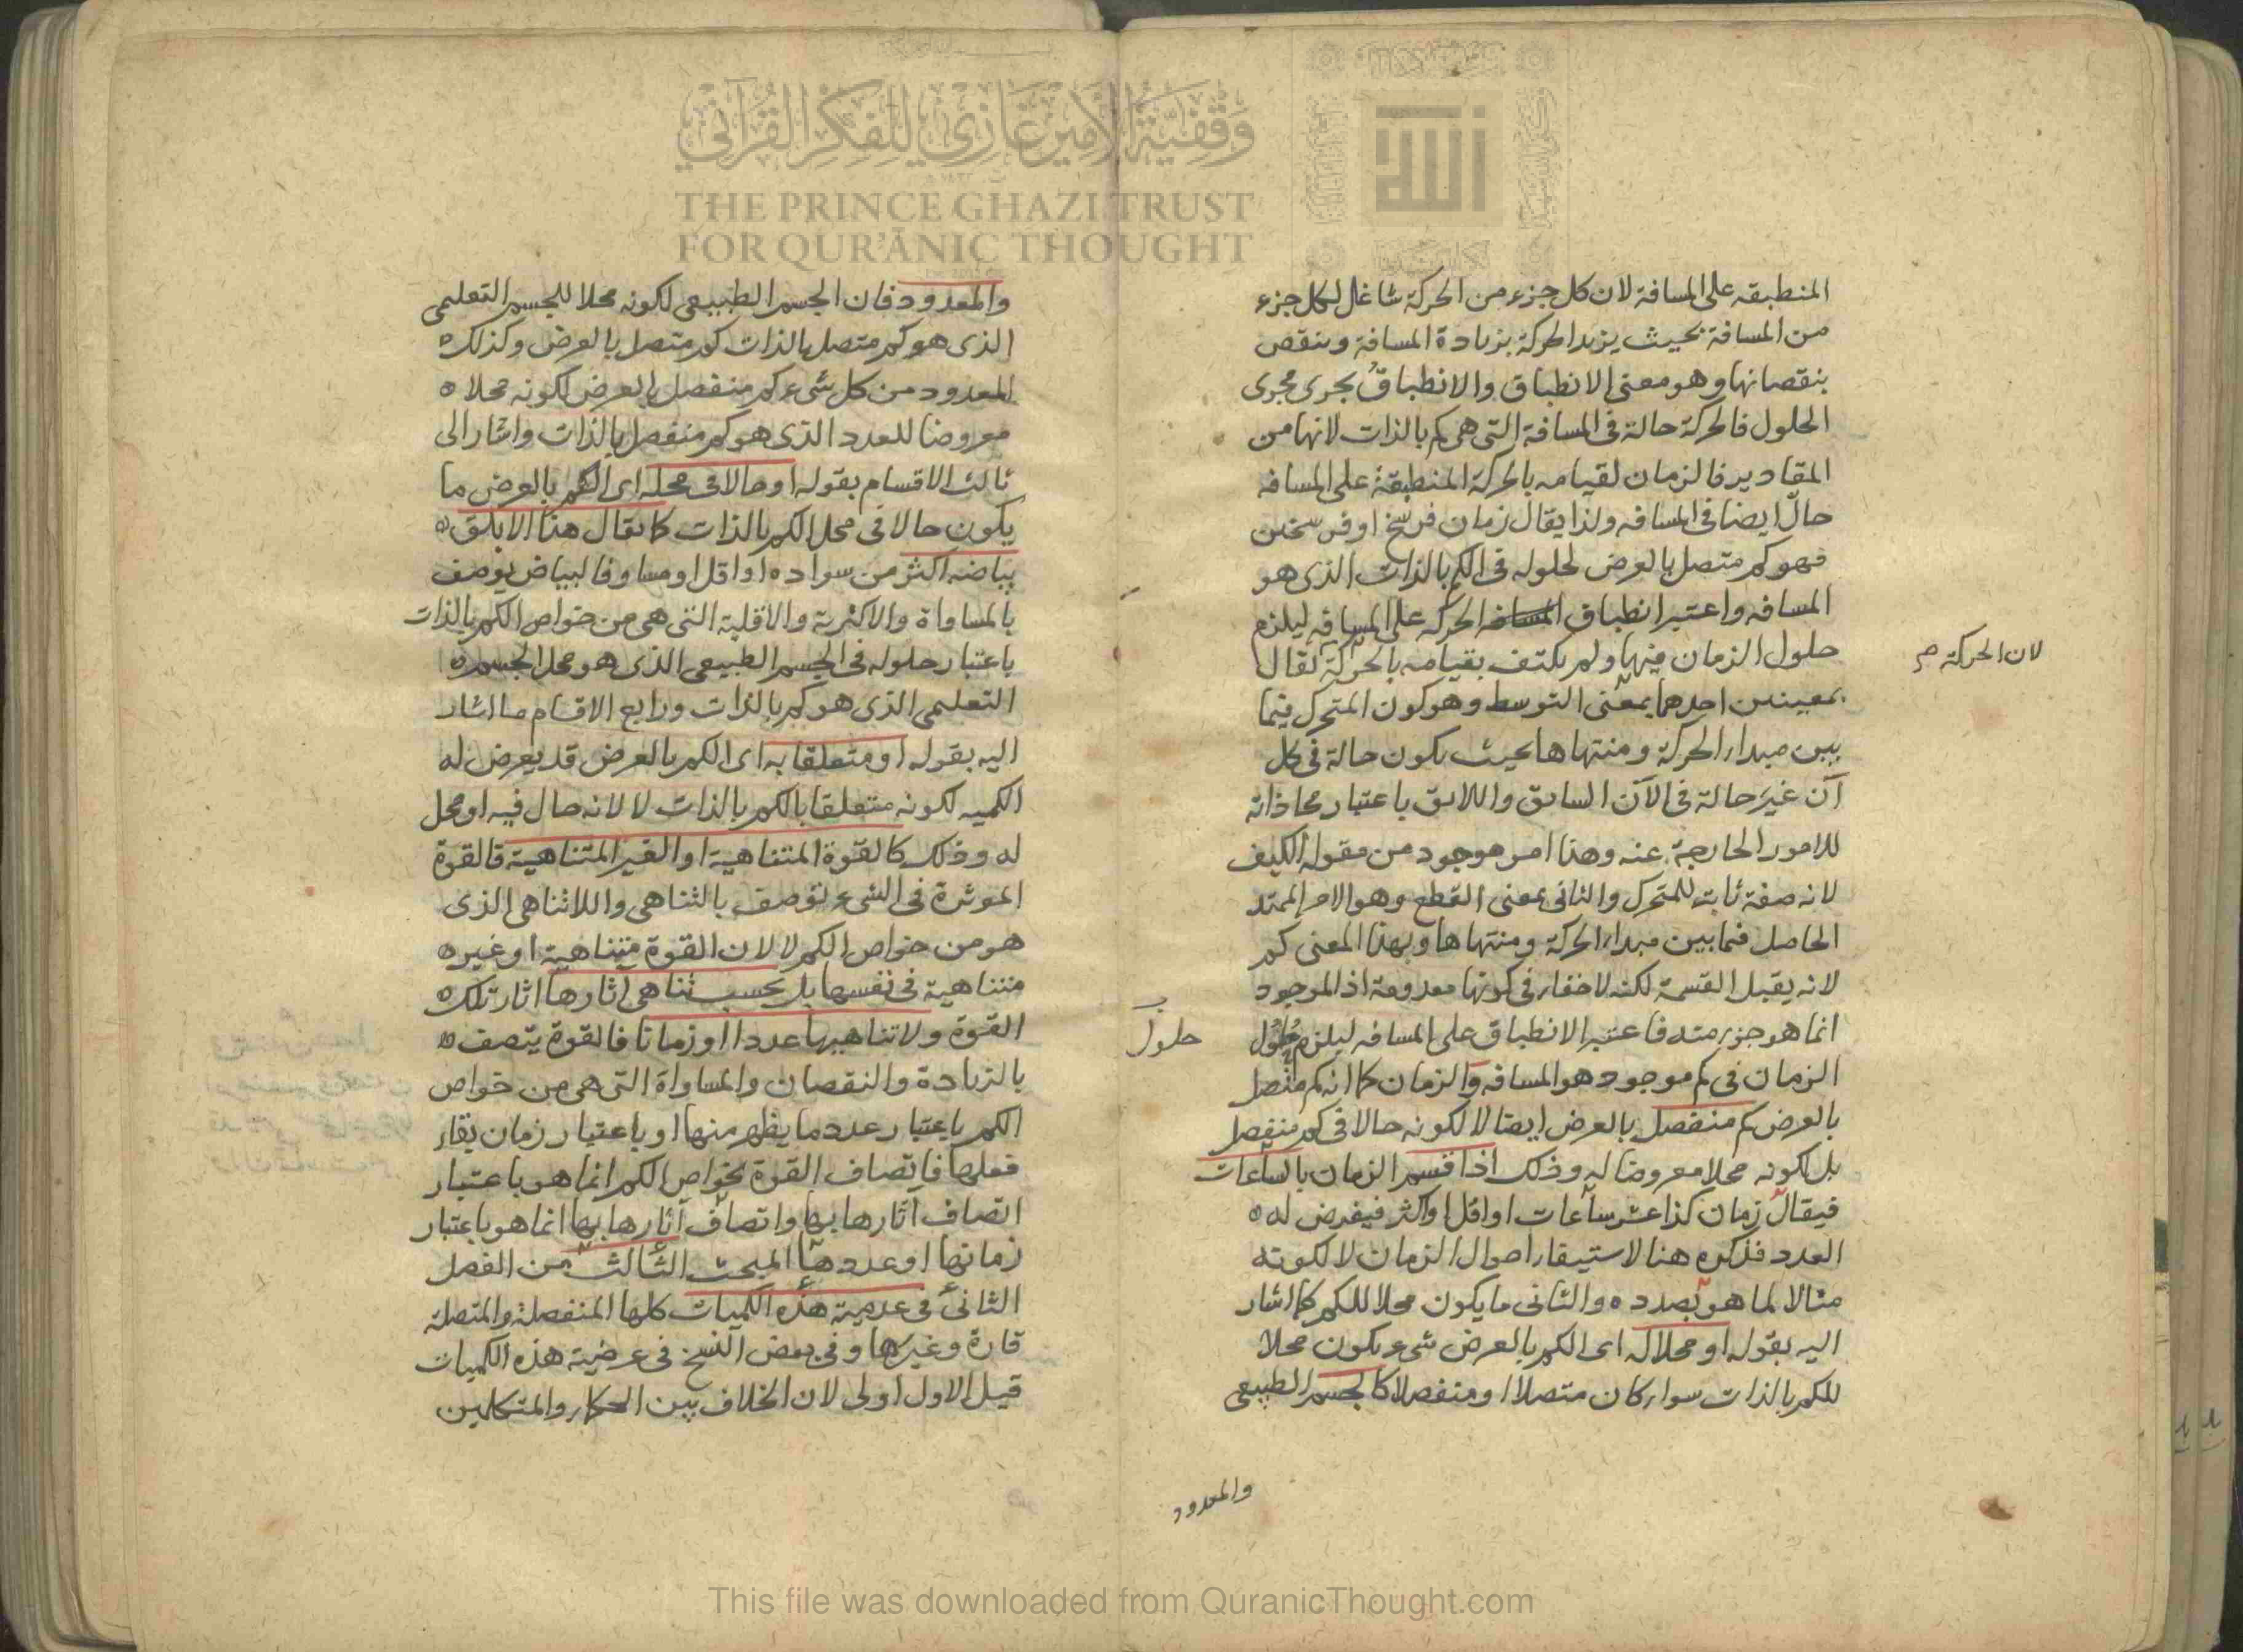 وقفية الأمير غازي للفكر القرآني
THE PRINCE GHAZI TRUST
FOR QUR'ĀNIC THOUGHT
المنطبقه على المسافة لان كل جزء من الحركة شاغل لكل جزء
من المسافة بحيث يزيد الحركة بزيادة المسافة وينقص
بنقصانها وهو معنى الانطباق والانطباق يجرى مجرى
الحلول فالحركة حالة في المسافة التى هى كم بالذات لانها من
المقادير فالزمان لقيامه بالحركة المنطبقة على المسافه
حالّ ايضا في المسافه ولذا يقال زمان فرسخ او فرسخين
فهو كم متصل بالعرض لحلوله في الكم بالذات الذى هو
المسافه واعتبر انطباق الحركه على المسافه ليلزم
حلول الزمان فيها ولم يكتف بقيامه بالحركة تقال
لان الحركة صح
بمعنيين احدهما بمعنى التوسط وهو كون المتحرك فيما
بين مبداء الحركة ومنتهاها بحيث يكون حالة في كل
آن غير حالة في الآن السابق واللاحق باعتبار محاذاته
للامور الخارجة عنه وهذا امر موجود من مقولة الكيف
لانه صفة ثابتة للمتحرك والثانى بمعنى القطع وهو الامر الممتد
الحاصل فيما بين مبداء الحركة ومنتهاها وبهذا المعنى كم
لانه يقبل القسمة لكنه لا خفاء في كونها معدومة اذ الموجود
انما هو جزء منه فاعتبر الانطباق على المسافه ليلزم حلول
حلول
الزمان في كم موجود هو المسافه والزمان كما انه كم متصل
بالعرض كم منفصل بالعرض ايضا لا لكونه حالا في كم منفصل
بل لكونه محلا معروضا له وذلك اذا قسم الزمان بالساعات
فيقال زمان كذا عشر ساعات او اقل او اكثر فيفرض له
العدد فذكره هنا لاستيفاء احوال الزمان لا لكونه
مثالا لما هو بصدده والثانى ما يكون محلا للكم كما اشار
اليه بقوله او محلا له اى الكم بالعرض شىء يكون محلا
للكم بالذات سواء كان متصلا او منفصلا كالجسم الطبيعى
والمعدود
والمعدود فان الجسم الطبيعى لكونه محلا للجسم التعليمى
الذى هو كم متصل بالذات كم متصل بالعرض وكذلك
المعدود من كل شىء كم منفصل بالعرض لكونه محلا
معروضا للعدد الذى هو كم منفصل بالذات واشار الى
ثالث الاقسام بقوله او حالا في محله اى الكم بالعرض ما
يكون حالا في محل الكم بالذات كما يقال هذا الابلق
بياضه اكثر من سواده او اقل او مساو فالبياض يوصف
بالمساواة والاكثرية والاقلية التى هى من خواص الكم بالذات
باعتبار حلوله في الجسم الطبيعى الذى هو محل الجسم
التعليمى الذى هو كم بالذات ورابع الاقسام ما اشار
اليه بقوله او متعلقا به اى الكم بالعرض قد يعرض له
الكميه لكونه متعلقا بالكم بالذات لا لانه حال فيه او محل
له وذلك كالقوة المتناهية او الغير المتناهية فالقوة
الموثرة في الشىء توصف بالتناهى واللاتناهى الذى
هو من خواص الكم لا لان القوة متناهية او غير
متناهية في نفسها بل بحسب تناهى آثارها اثار تلك
القوة ولا تناهيها عددا او زمانا فالقوة يتصف
بالزيادة والنقصان والمساواة التى هى من خواص
الكم باعتبار عدد ما يظهر منها او باعتبار زمان بقاء
فعلها فاتصاف القوة بخواص الكم انما هو باعتبار
اتصاف آثارها بها واتصاف آثارها بها انما هو باعتبار
زمانها او عددها المبحث الثالث من الفصل
الثانى في عدمية هذه الكميات كلها المنفصلة والمتصلة
قارة وغيرها وفي بعض النسخ في عرضية هذه الكميات
قيل الاول اولى لان الخلاف بين الحكاء والمتكلمين
This file was downloaded from QuranicThought.com